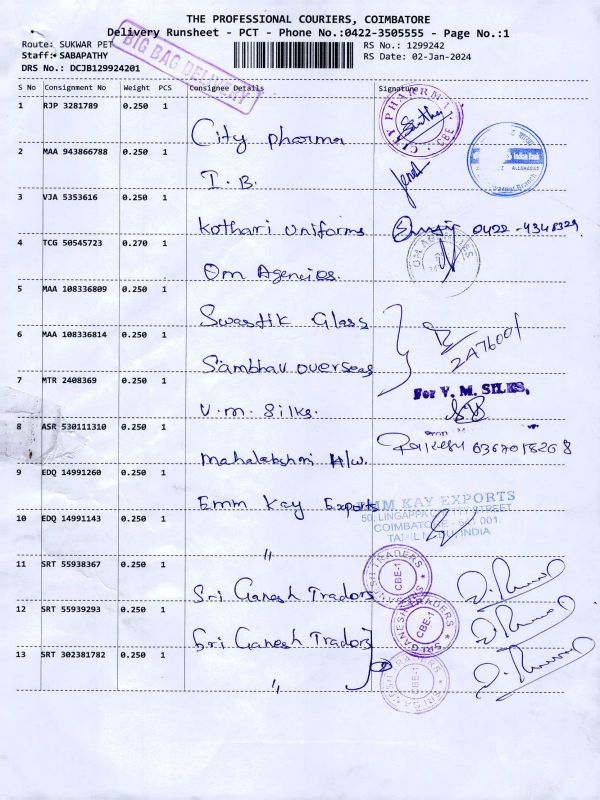 THE PROFESSIONAL COURIERS, COIMBATORE
Delivery Runsheet - PCT - Phone No.:0422-3505555 - Page No.:1
Route: SUKWAR PET
RS No.: 1299242
Staff: SABAPATHY
RS Date: 02-Jan-2024
DRS No.: DCJB129924201
BIG BAG DELIVERY
S No Consignment No Weight PCS Consignee Details Signature
1 RJP 3281789 0.250 1
City pharma
CITY PHARM
2 MAA 943866788 0.250 1
I. B.
Indian Bank
ALLAHABAD
3 VJA 5353616 0.250 1
Kothari Uniforms
4 TCG 50545723 0.270 1
Om Agencies.
OM AGENCIES
5 MAA 108336809 0.250 1
Swastik Glass
6 MAA 108336814 0.250 1
Sambhav overseas
2A76001
7 MTR 2408369 0.250 1
V.m. Silks.
For V. M. SILKS,
8 ASR 530111310 0.250 1
Mahalakshmi H/w.
9 EDQ 14991260 0.250 1
Emm Kay Exports
EMM KAY EXPORTS
50, LINGAPPA CHETTY STREET
COIMBATORE - 641 001.
TAMIL NADU, INDIA
10 EDQ 14991143 0.250 1
"
11 SRT 55938367 0.250 1
Sri Ganesh Tradors
SRI GANESH TRADERS
CBE-1
12 SRT 55939293 0.250 1
Sri Ganesh Tradors
SRI GANESH TRADERS
CBE-1
13 SRT 302381782 0.250 1
"
SRI GANESH TRADERS
CBE-1